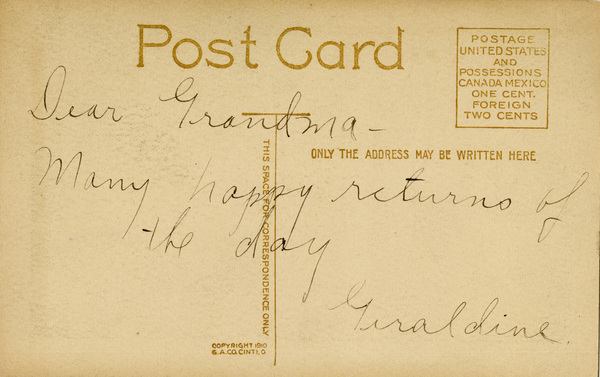 Post Card
POSTAGE
UNITED STATES
AND
POSSESSIONS
CANADA MEXICO
ONE CENT.
FOREIGN
TWO CENTS
Dear Grandma-
ONLY THE ADDRESS MAY BE WRITTEN HERE
THIS SPACE FOR CORRESPONDENCE ONLY
Many happy returns of
the day
Geraldine.
COPYRIGHT 1910
G.A.CO. CINTI.O